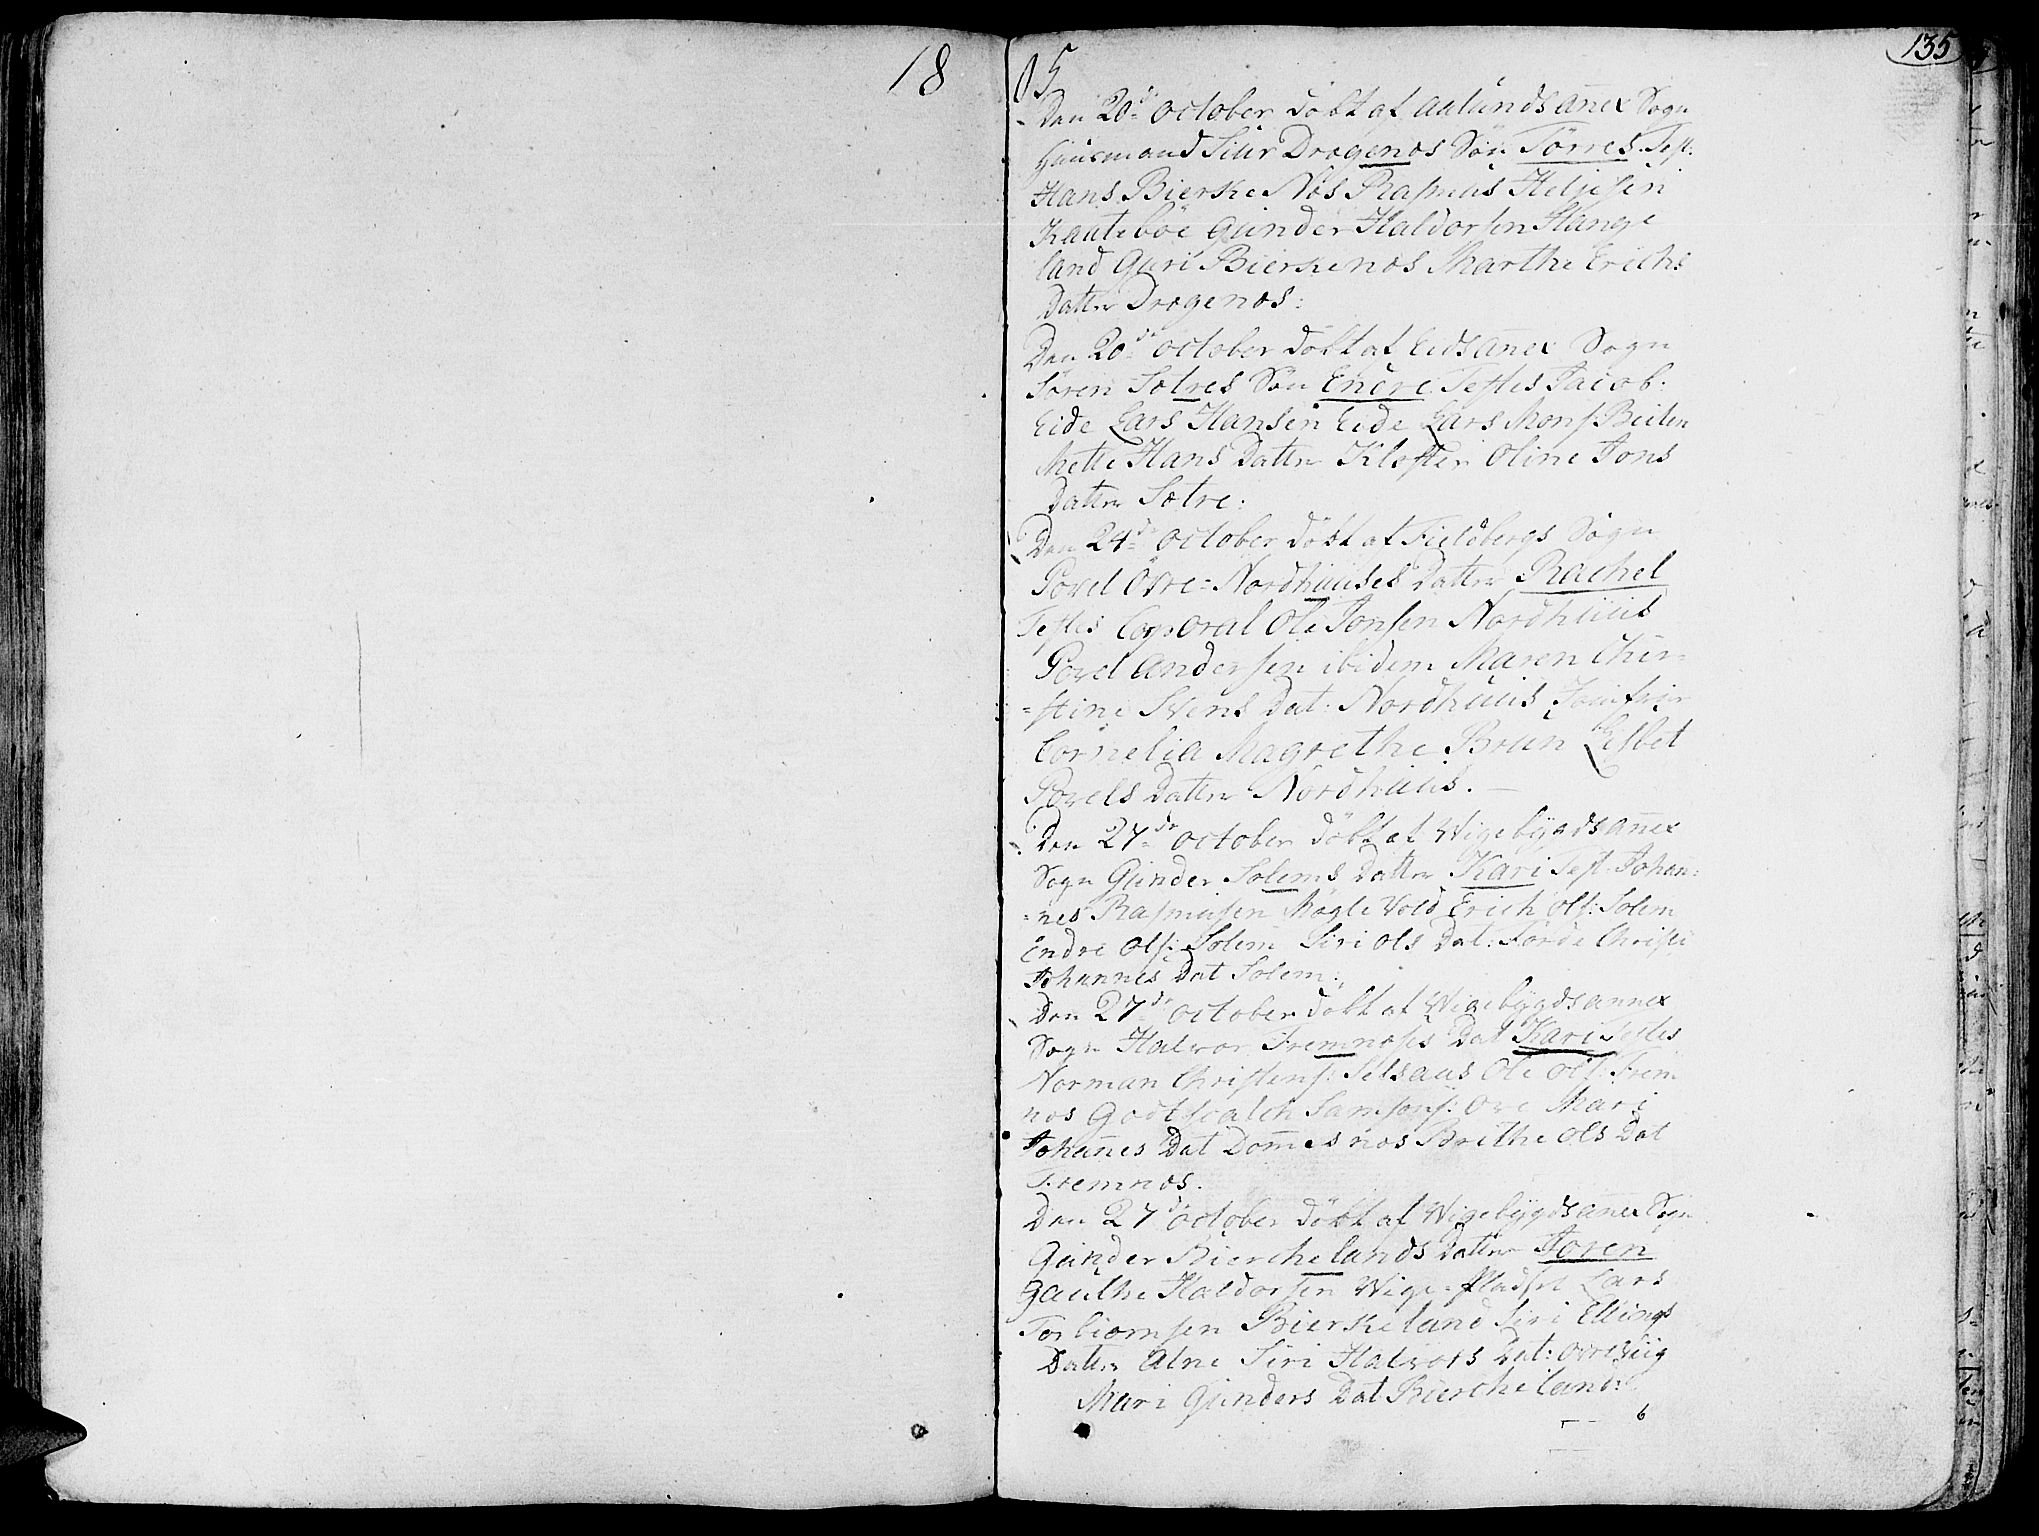 18 05
135
Den 20de October döbt af aalunds annex Sogn
Huusmand Siur Dragenos Sön Törres Test:
Hans Bierke Nös Rasmus Heljesen
Kauteböe Gunder Haldorsen Stange
land Guri Bierkenos Marthe Erichs
Datter Dragenos:
Den 20de October döbt af Eids annex Sogn
Sören Sætres Sön Endre Testes Jacob
Eide Lars Hansen Eide Lars Mons: Beiten
Mette Hans Datter Kloster Oline Jons
Datter Sætre:
Den 24de October döbt af Fieldbergs Sogn
Povel Övre=Nordhuuses Datter Rachel
Testes Corporal Ole Jonsen Nordhuus
Povel Andersen ibidem Maren Chir=
=stine Svens Dat: Nordhuus Jomfrue
Cornelia Magrethe Brun Lisbet
Povels Datter Nordhuus.
Den 27de October döbt af Wigebygds annex
Sogn Gunder Solems Datter Kari Test. Johan=
=nes Rasmusen Møgle Vold Erich Ols: Solem
Endre Ols: Solem Siri Ols Dat: Förde Christi
Johannes Dat Solem:
Den 27de October döbt af Wigebygds annex
Sogn Halvor Fremnöses Dat Kari Testes
Norman Christens: Selsaas Ole Ols: Frem
nos Godtscalch Samsons: Öve Mari
Johannes Dat Dommesnos Brithe Ols Dat
Fremnos.
Den 27de October döbt af Wigebygds annex Sogn
Gunder Bierchelands Datter Joren
Gauthe Haldorsen Wige=Pladset Lars
Torbiornsen Bierkeland Siri Ellings
Datter Alne Siri Halvors Dat: Övrevig
Mari Gunders Dat Biercheland:
6